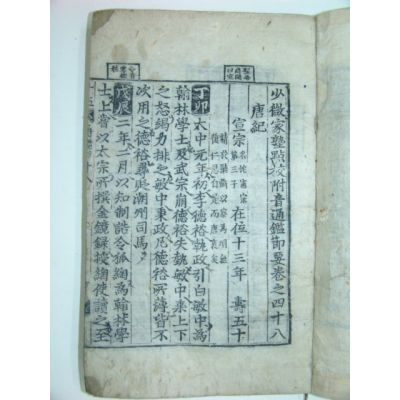 少微家塾點校附音通鑑節要卷之四十八
唐紀
宣宗 在位十三年 壽五十
丁卯 太中元年初李德裕執政引白敏中爲
翰林學士及武宗崩德裕失執敏中乘上下
之怒竭力排之敏中秉政凡德裕所薄皆不
次用之德裕尋貶潮州司馬
戊辰 二年二月以知制誥令狐綯爲翰林學
士上嘗以太宗所撰金鏡錄授綯使讀之至